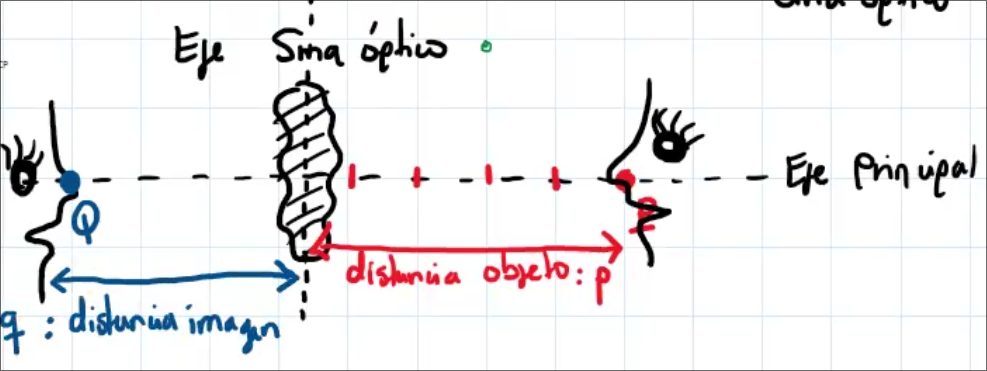 Eje Sma óptico
Eje Principal
Q
distancia objeto: p
q : distancia imagen